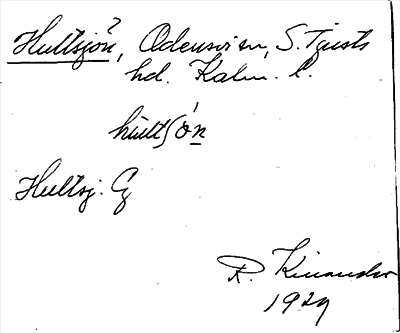 Hultsjön?, Odensvi sn, S. Tjusts
hd. Kalm. l.
hultʃön
Hultsj. Eg
R. Kinander
1929